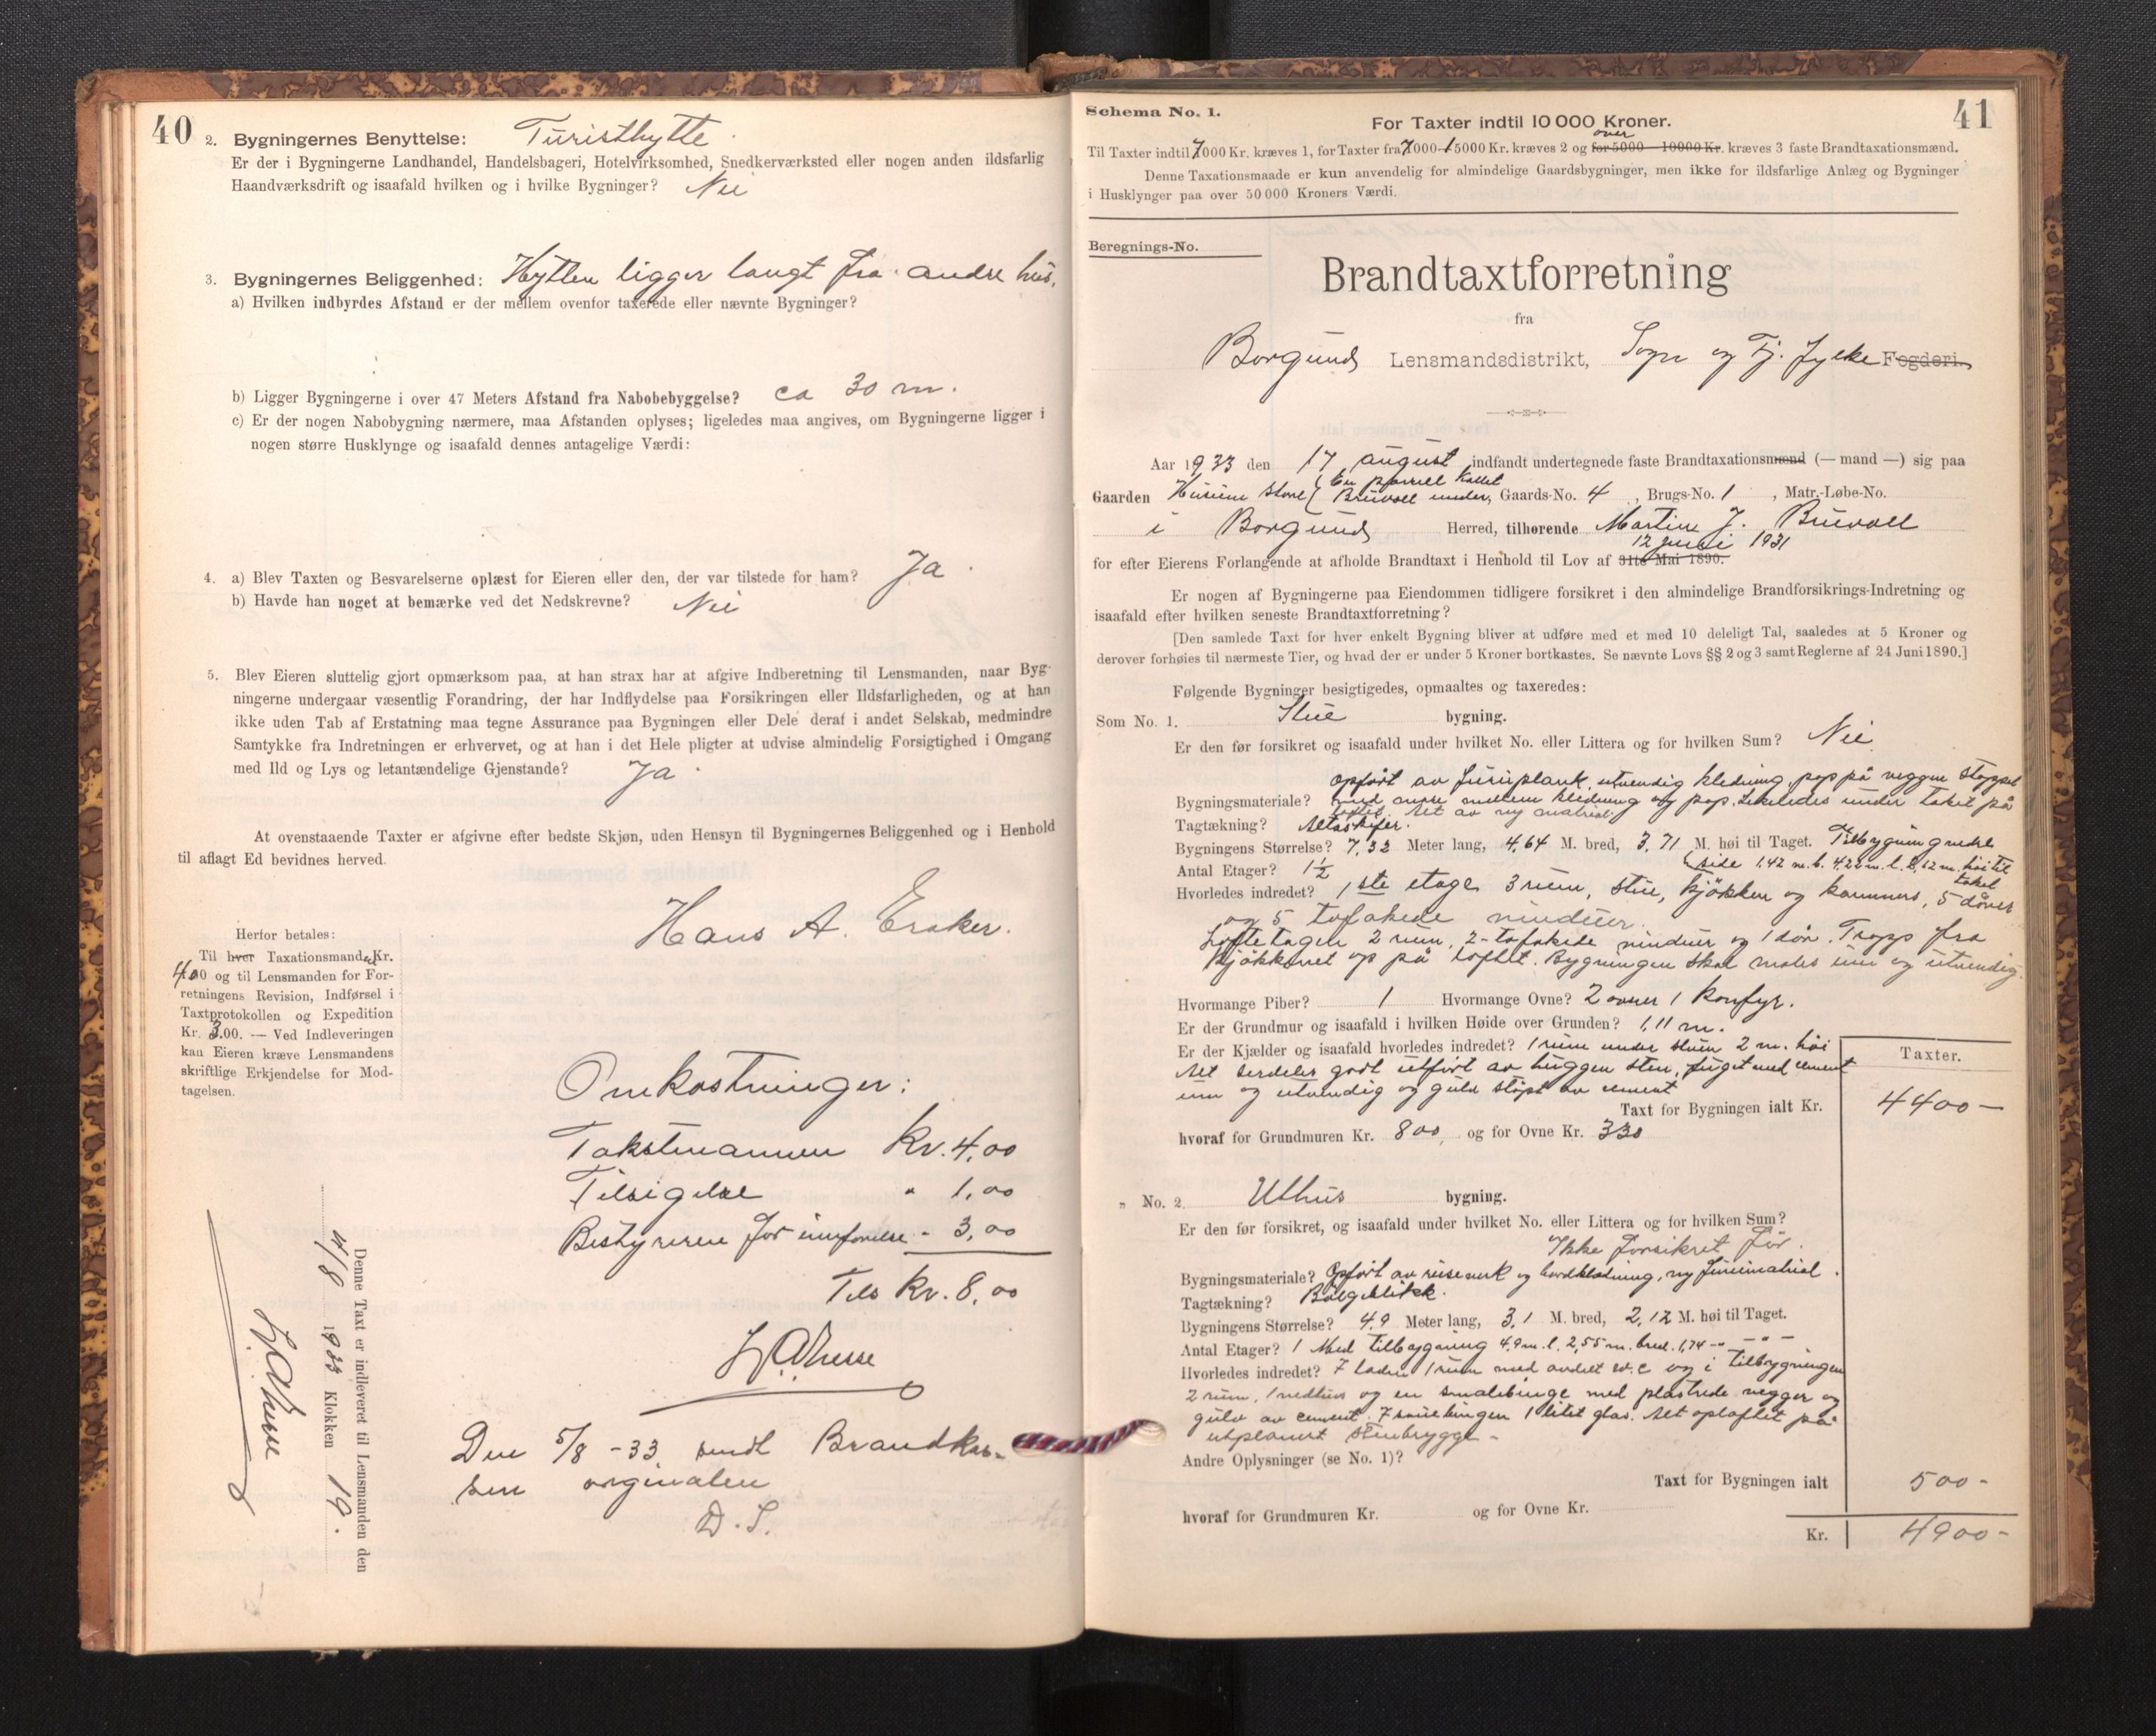 40
2. Bygningernes Benyttelse: Turisthytte.
Er der i Bygningerne Landhandel, Handelsbageri, Hotelvirksomhed, Snedkerværksted eller nogen anden ildsfarlig
Haandværksdrift og isaafald hvilken og i hvilke Bygninger? Nei
3. Bygningernes Beliggenhed: Hytten ligger langt fra andre hus.
a) Hvilken indbyrdes Afstand er der mellem ovenfor taxerede eller nævnte Bygninger?
b) Ligger Bygningerne i over 47 Meters Afstand fra Nabobebyggelse? ca 30 m.
c) Er der nogen Nabobygning nærmere, maa Afstanden oplyses; ligeledes maa angives, om Bygningerne ligger i
nogen større Husklynge og isaafald dennes antagelige Værdi:
4. a) Blev Taxten og Besvarelserne oplæst for Eieren eller den, der var tilstede for ham? Ja.
b) Havde han noget at bemærke ved det Nedskrevne? Nei
5. Blev Eieren sluttelig gjort opmærksom paa, at han strax har at afgive Indberetning til Lensmanden, naar Byg-
ningerne undergaar væsentlig Forandring, der har Indflydelse paa Forsikringen eller Ildsfarligheden, og at han
ikke uden Tab af Erstatning maa tegne Assurance paa Bygningen eller Dele deraf i andet Selskab, medmindre
Samtykke fra Indretningen er erhvervet, og at han i det Hele pligter at udvise almindelig Forsigtighed i Omgang
med Ild og Lys og letantændelige Gjenstande? Ja.
At ovenstaaende Taxter er afgivne efter bedste Skjøn, uden Hensyn til Bygningernes Beliggenhed og i Henhold
til aflagt Ed bevidnes herved.
Hans A. Eraker.
Herfor betales:
Til hver Taxationsmand Kr.
4.00 og til Lensmanden for For-
retningens Revision, Indførsel i
Taxtprotokollen og Expedition
Kr. 3.00. — Ved Indleveringen
kan Eieren kræve Lensmandens
skriftlige Erkjendelse for Mod-
tagelsen.
Omkostninger:
Takstmannen Kr. 4,00
Tilsigelse " 1,00
Bestyreren for innførelse - 3,00
Tils Kr. 8,00
Den 5/8 -33 sendt Brandkas-
sen orginalen
D.S.
Denne Taxt er indleveret til Lensmanden den
4/8 1933 Klokken 19.
Schema No. 1.
41
For Taxter indtil 10 000 Kroner.
over
Til Taxter indtil 7000 Kr. kræves 1, for Taxter fra 7000-15000 Kr. kræves 2 og for 5000—10000 Kr. kræves 3 faste Brandtaxationsmænd.
Denne Taxationsmaade er kun anvendelig for almindelige Gaardsbygninger, men ikke for ildsfarlige Anlæg og Bygninger
i Husklynger paa over 50 000 Kroners Værdi.
Beregnings-No.
Brandtaxtforretning
fra
Borgund Lensmandsdistrikt, Sogn og Fj. fylke Fogderi.
Aar 1933 den 17 august indfandt undertegnede faste Brandtaxationsmænd (— mand —) sig paa
En parsell kallet
Gaarden Husum store Bruvoll under, Gaards-No. 4, Brugs-No. 1, Matr.-Løbe-No.
i Borgund Herred, tilhørende Martin J. Bruvoll
12 juni 1931
for efter Eierens Forlangende at afholde Brandtaxt i Henhold til Lov af 31te Mai 1890.
Er nogen af Bygningerne paa Eiendommen tidligere forsikret i den almindelige Brandforsikrings-Indretning og
isaafald efter hvilken seneste Brandtaxtforretning?
[Den samlede Taxt for hver enkelt Bygning bliver at udføre med et med 10 deleligt Tal, saaledes at 5 Kroner og
derover forhøies til nærmeste Tier, og hvad der er under 5 Kroner bortkastes. Se nævnte Lovs §§ 2 og 3 samt Reglerne af 24 Juni 1890.]
Følgende Bygninger besigtigedes, opmaaltes og taxeredes:
Som No. 1. Stue bygning.
Er den før forsikret og isaafald under hvilket No. eller Littera og for hvilken Sum? Nei
opført av furuplank, utvendig kledning, pap på veggen stoppet
Bygningsmateriale? med mose mellem kledning og pap. Likeledes under taket på
loftet. Alt av ny matrial.
Tagtækning? Altaskifer.
Bygningens Størrelse? 7,32 Meter lang, 4,64 M. bred, 3,71 M. høi til Taget. Tilbygning nedre
Antal Etager? 1½ side 1,42 m.b. 4,22 m.l. 2,12 m. høi til
taket
Hvorledes indredet? 1ste etage 3 rum, stue, kjøkken og kammers, 5 dører
og 5 tofakede vinduer.
Loftetagen 2 rum, 2-tofakede vinduer og 1 dør. Trapp fra
kjøkkenet op på loftet. Bygningen skal males inn og utvendig.
Hvormange Piber? 1 Hvormange Ovne? 2 ovner 1 komfyr.
Er der Grundmur og isaafald i hvilken Høide over Grunden? 1,11 m.
Er der Kjælder og isaafald hvorledes indredet? 1 rum under stuen 2 m. høi
Alt serdeles godt utført av huggen sten, fuget med cement
inn og utvendig og gulv støpt av cement
Taxter.
Taxt for Bygningen ialt Kr. 4400—
hvoraf for Grundmuren Kr. 800 og for Ovne Kr. 330
" No. 2. Uthus bygning.
Er den før forsikret, og isaafald under hvilket No. eller Littera og for hvilken Sum?
Ikke forsikret før.
Bygningsmateriale? Opført av reisverk og bordklædning, ny furumatrial.
Tagtækning? Bølgeblikk.
Bygningens Størrelse? 4,9 Meter lang, 3,1 M. bred, 2,12 M. høi til Taget.
Antal Etager? 1 Med tilbygning 4,9 m.l. 2,55 m. bred. 1,74 -"- -"-
Hvorledes indredet? 7 laden 1 rum med avdelt W.C og i tilbygningen
2 rum, 1 vedhus og en smalebinge med plastrede vegger og
gulv av cement. I sauebingen 1 litet glas. Alt opløftet på
utplanert stenbrygge -
Andre Oplysninger (se No. 1)?
Taxt for Bygningen ialt 500-
hvoraf for Grundmuren Kr. og for Ovne Kr.
Kr. 4900-